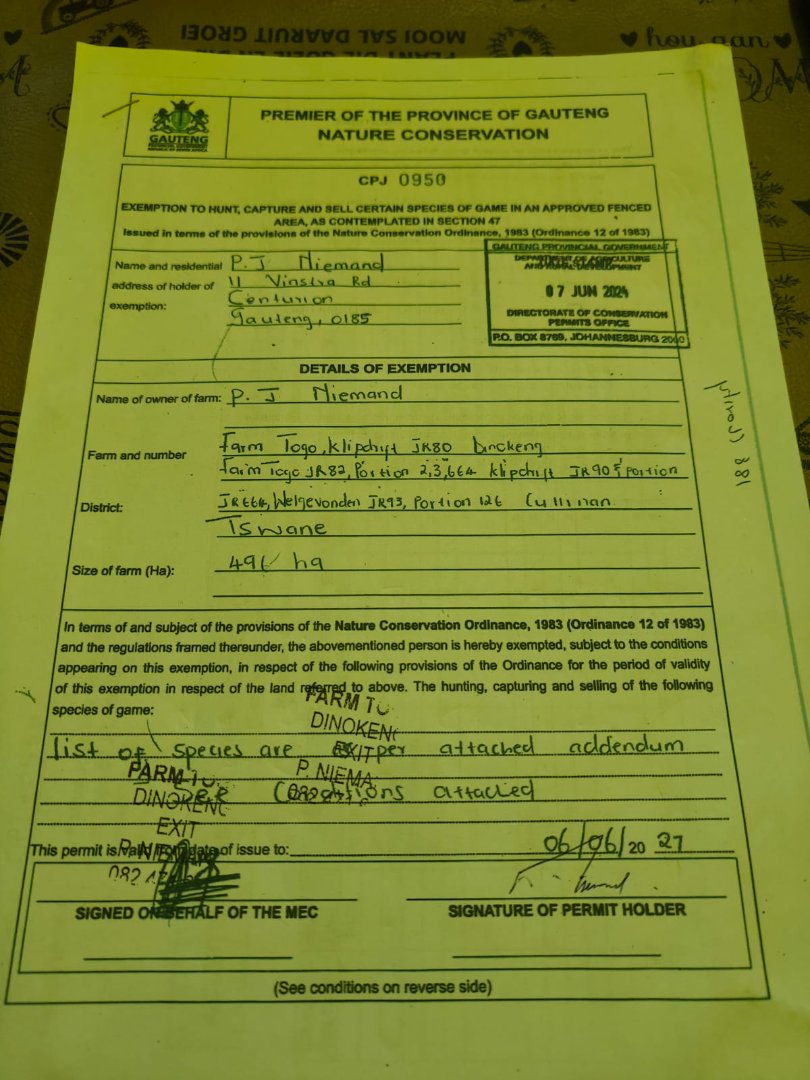 MOOI SAL GROEI
PLANT DIE
hou aan
GAUTENG
PROVINCIAL GOVERNMENT
REPUBLIC OF SOUTH AFRICA
PREMIER OF THE PROVINCE OF GAUTENG
NATURE CONSERVATION
CPJ 0950
EXEMPTION TO HUNT, CAPTURE AND SELL CERTAIN SPECIES OF GAME IN AN APPROVED FENCED
AREA, AS CONTEMPLATED IN SECTION 47
Issued in terms of the provisions of the Nature Conservation Ordinance, 1983 (Ordinance 12 of 1983)
GAUTENG PROVINCIAL GOVERNMENT
DEPARTMENT OF AGRICULTURE
AND RURAL DEVELOPMENT
07 JUN 2024
DIRECTORATE OF CONSERVATION
PERMITS OFFICE
P.O. BOX 8769, JOHANNESBURG 2000
Name and residential P. J Niemand
address of holder of 11 Vinstra Rd
exemption: Centurion
Gauteng, 0185
DETAILS OF EXEMPTION
Name of owner of farm: P. J Niemand
Farm and number Farm Togo, Klipdrift JR80 Dinokeng
Farm Togo JR82, Portion 2,3,664 Klipdrift JR90 Portion
District: JR664, Welgevonden JR93, Portion 126 Cullinan
Tswane
Size of farm (Ha): 496 ha
In terms of and subject of the provisions of the Nature Conservation Ordinance, 1983 (Ordinance 12 of 1983)
and the regulations framed thereunder, the abovementioned person is hereby exempted, subject to the conditions
appearing on this exemption, in respect of the following provisions of the Ordinance for the period of validity
of this exemption in respect of the land referred to above. The hunting, capturing and selling of the following
species of game:
FARM TO
DINOKENG
EXIT
P. NIEMA
list of species are per attached addendum
attached
FARM TO
DINOKENG
EXIT
P. NIEM
082
This permit is valid from date of issue to: 06/06/20 27
SIGNED ON BEHALF OF THE MEC
SIGNATURE OF PERMIT HOLDER
(See conditions on reverse side)